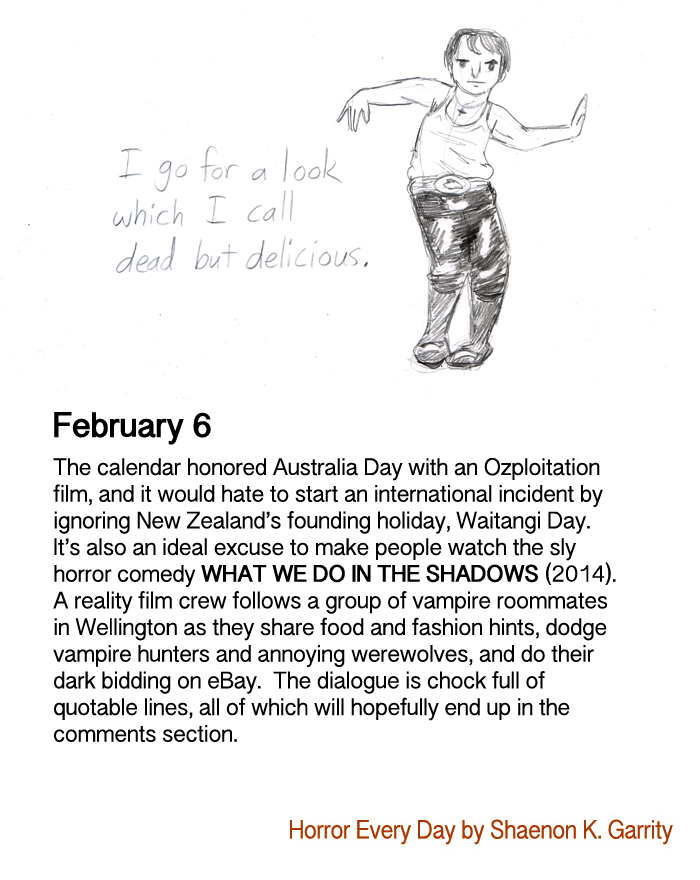 I go for a look
which I call
dead but delicious.
February 6
The calendar honored Australia Day with an Ozploitation
film, and it would hate to start an international incident by
ignoring New Zealand's founding holiday, Waitangi Day.
It's also an ideal excuse to make people watch the sly
horror comedy WHAT WE DO IN THE SHADOWS (2014).
A reality film crew follows a group of vampire roommates
in Wellington as they share food and fashion hints, dodge
vampire hunters and annoying werewolves, and do their
dark bidding on eBay.  The dialogue is chock full of
quotable lines, all of which will hopefully end up in the
comments section.
Horror Every Day by Shaenon K. Garrity